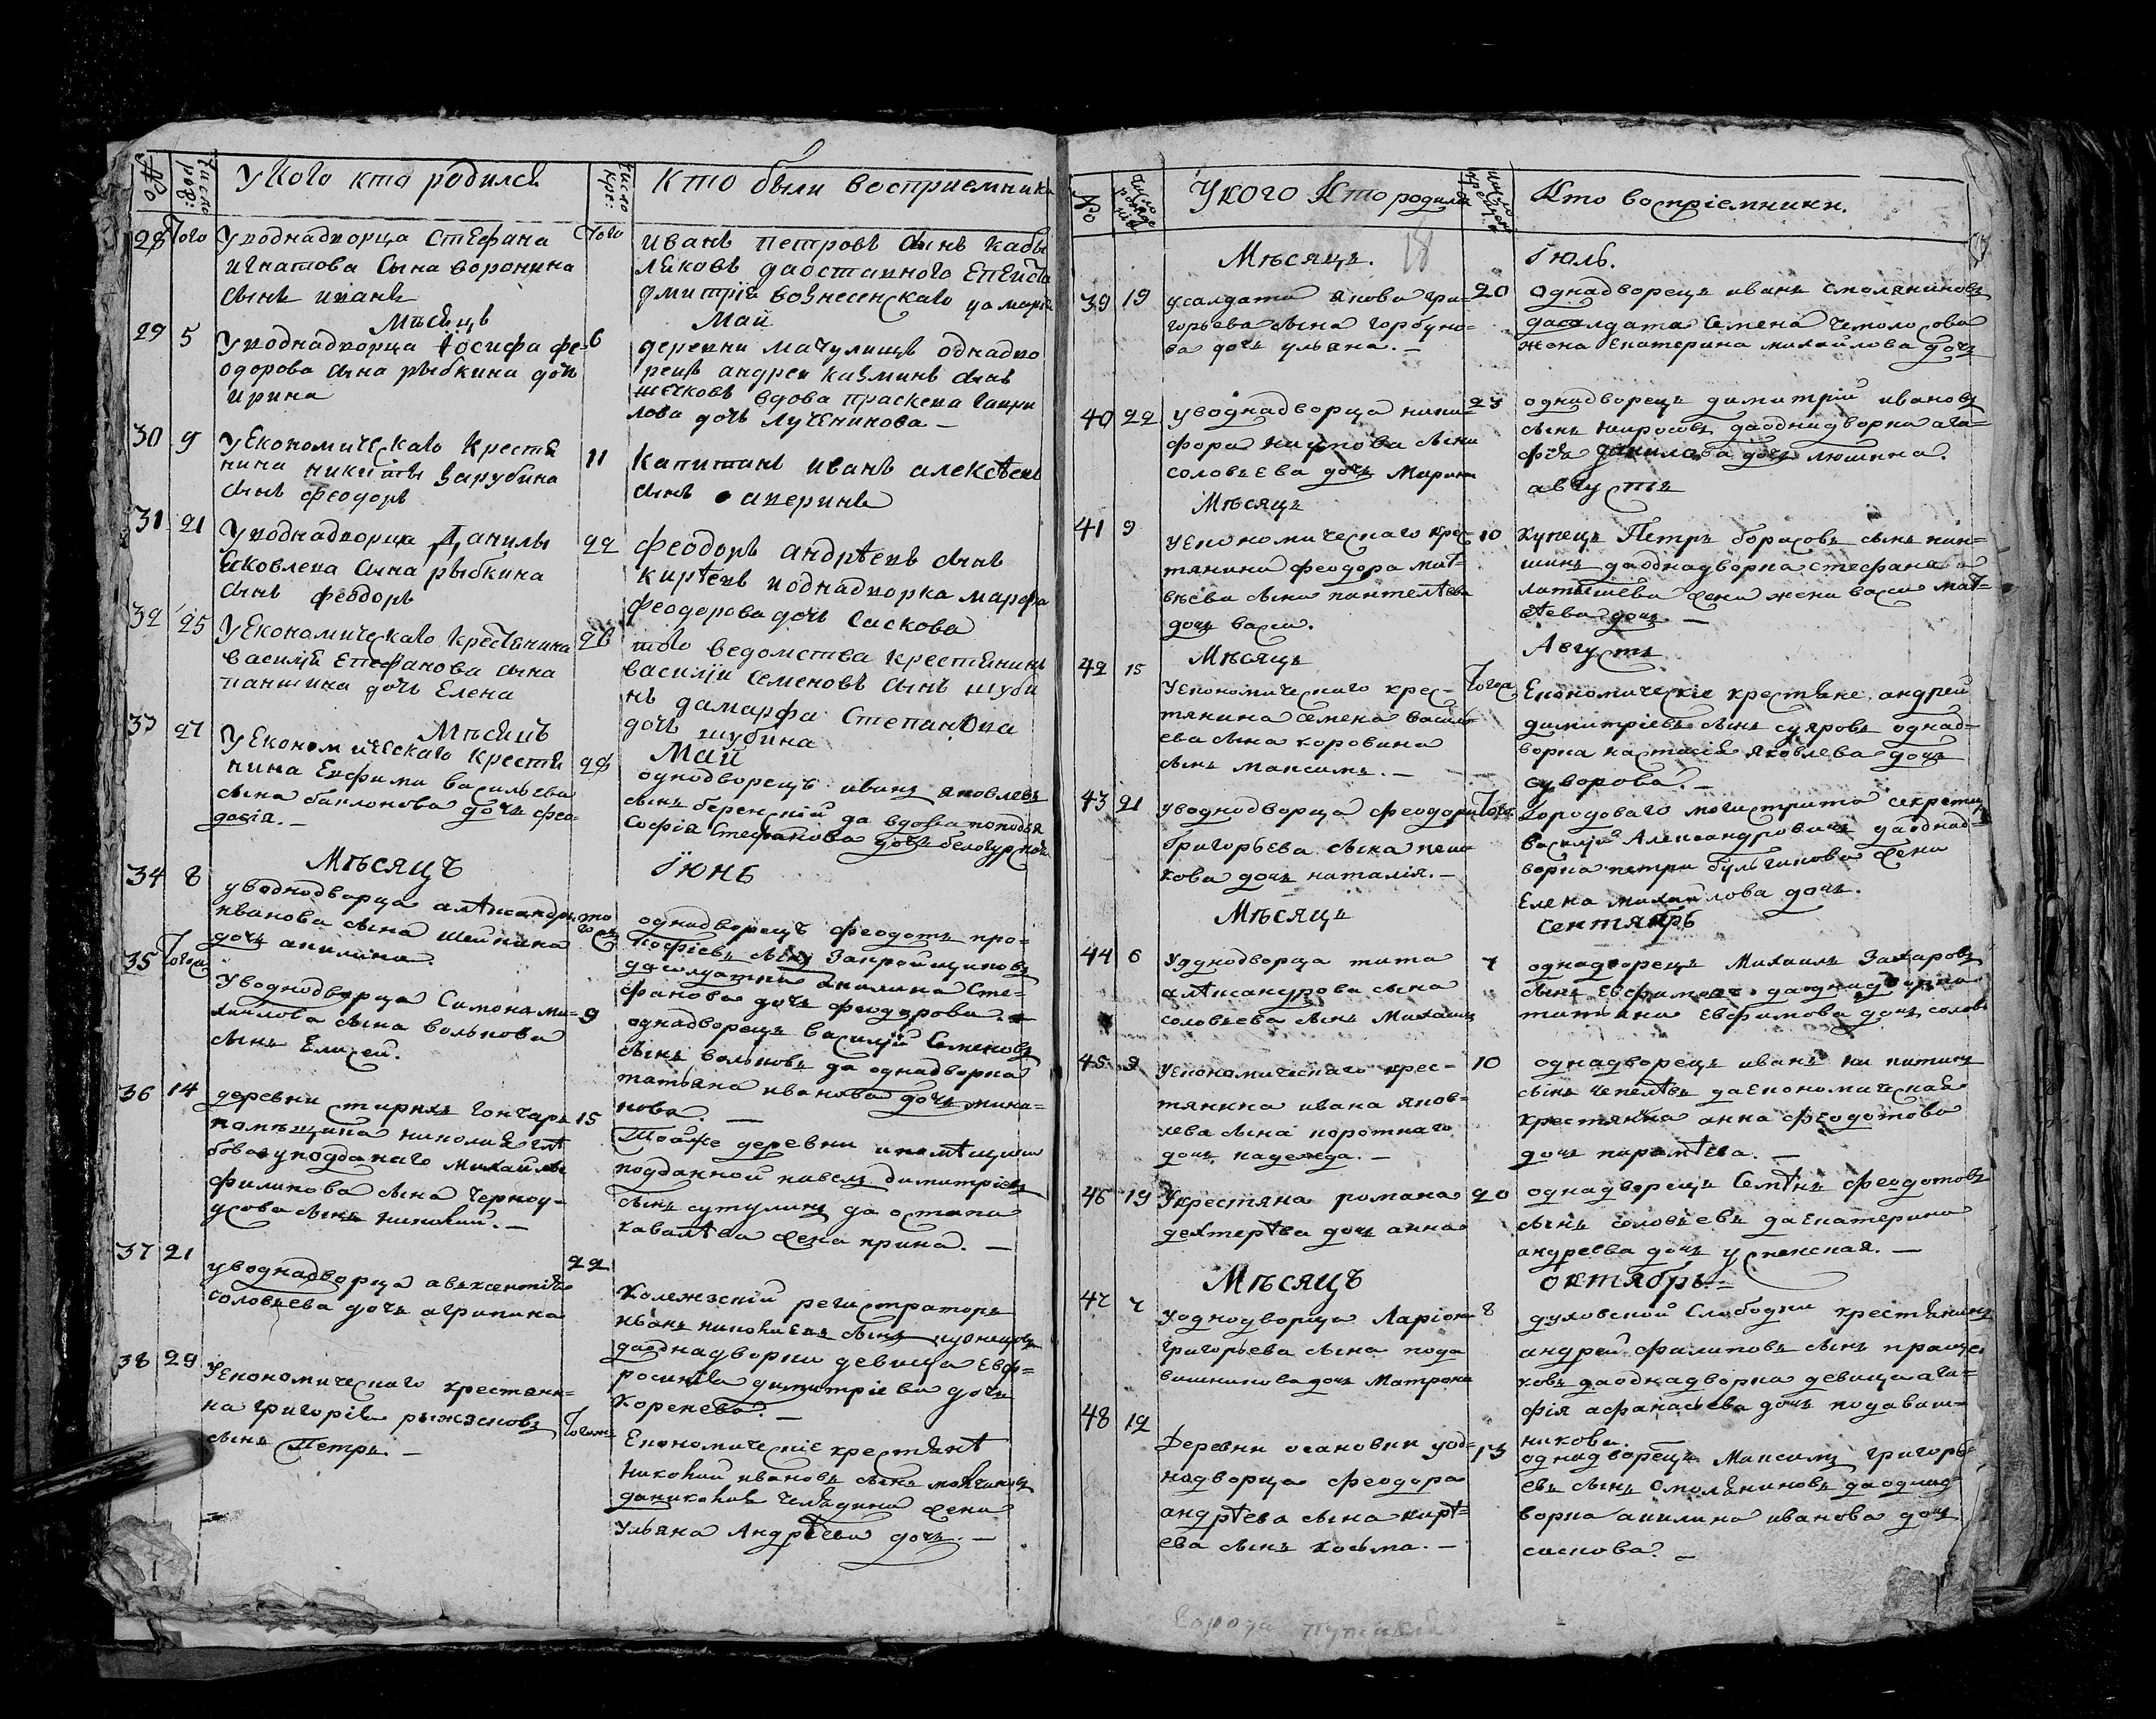 №
Число рож:
У кого кто родился
Число кре:
Кто были восприемники
28 Того
У воднадворца Стефана
игнатова сына воронина
сынъ иванъ
Того
иванъ петровъ сынъ кобы
ляковъ да оставного
дмитрія вознесенскаго
Мѣсяцъ
Май
29 5
У воднадворца Іосифа фе-
одорова сына рыбкина дочь
ирина
6
деревни мачулищъ однадво
рецъ андреи казминъ сынъ
вдова праскева гаври
лова дочь лученинова
30 9
У Економическаго Крестя
нина никиты Зарубина
сынъ феодоръ
11
Капитанъ иванъ алексѣевъ
сынъ аверинъ
31 21
У воднадворца Данилы
Яковлева сына рыбкина
сынъ феодоръ
22
феодоръ андрѣевъ сынъ
кирѣевъ воднадворка марфа
феодорова дочь
32 25
У Економическаго Крестянина
василія Епифанова сына
паншина дочь Елена
26
того ведомства крестянинъ
василіи семеновъ сынъ шуби
нъ да марфа Степанова
дочь шубина
Мѣсяцъ
Май
33 27
У Економическаго крестя
нина Евфима васильева
сына дочь фео-
досія.
28
однодворецъ иванъ яковлевъ
сынъ да вдова попадья
Софія Стефанова дочь
Мѣсяцъ
Іюнь
34 8
уводнодворца алѣксандра
иванова сына шейкина
дочь акилина.
тогож
однадворецъ феодотъ про-
кофіевъ сынъ
да солдатка акилина Сте-
фанова дочь феодорова.
35 Тогож
Уводнодворца Симона ми-
хаилова сына волкова
сынъ Елисей.
9
однадворецъ василій Семеновъ
сынъ волковъ да однадворка
татьяна иванова дочь
нова.
36 14
деревни гончара
помѣщика николая глѣ
бова уподданаго Михайлы
филипова сына черноу-
сова сынъ николай.
15
Тойже деревни
подданной павелъ димитріевъ
сынъ сутулинъ да остапа
ковалѣва жена ирина.
37 21
уводнадворца авксентія
Соловьева дочь агрипина
22
Колежскій регистраторъ
иванъ николаевъ сынъ кузнецовъ
да однадворка девица Евф-
росинія димитріева дочь
Коренева.
38 29
У економическаго крестьяни-
на григорія рыжновъ
сынъ Петръ.
Тогож
Економическіе крестьянѣ
Николай ивановъ сынъ
да николая жена
Ульяна Андрѣева дочь.
№
Число рожде нія
У кого Кто родился
Число крещенія
Кто воспріемники.
18
Мѣсяцъ.
Іюль.
39 19
у салдата якова гри-
горьева сына горбуно-
ва дочь ульяна.
20
Однадворецъ иванъ смоляниновъ
да салдата Семена
жена Екатерина михайлова дочь
40 22
уводнадворца ники-
фора сына
соловьева дочь Марина
23
однадворецъ димитрій ивановъ
сынъ да однадворка ага-
фія данилова дочь люшина.
Мѣсяцъ
августъ
41 9
У економическаго крес-
тянина феодора мат-
вѣева сына пантелѣева
дочь васса.
10
Купецъ Петръ борисовъ сынъ
шинъ да однадворца стефана
латышева жена васса мат-
вѣева дочь.
Мѣсяцъ
Августъ
42 15
У економическаго крес-
тянина Семена василь-
ева сына коровина
сынъ максимъ.
Тогож
Економическіе крестьяне андрей
димитріевъ сынъ суяровъ однад-
ворка настасія яковлева дочь
суворова.
43 21
уводнодворца феодора
григорьева сына
кова дочь наталія.
Тогож
Городоваго магистрата секретарь
василій Александровичъ да однад-
ворца петра булычникова жена
Елена михайлова дочь.
Мѣсяцъ
сентябрь
44 6
У однодворца тита
алѣксандрова сына
соловьева сынъ Михаилъ
7
однадворецъ Михаилъ Захаровъ
сынъ Евфимовъ да однадворка
татьяна Евфимова дочь солов
45 9
У економическаго крес-
тянина ивана яков-
лева сына короткаго
дочь надежда.
10
однадворецъ иванъ никитинъ
сынъ чепелѣвъ да економическая
крестянка анна феодотова
дочь
46 19
У крестяна романа
дехтерѣва дочь анна
20
однадворецъ Семѣнъ феодотовъ
сынъ соловьевъ да екатерина
андреева дочь успенская.
Мѣсяцъ
октябрь
47 7
У однодворца Ларіона
Григорьева сына пода
вашникова дочь Матрона
8
духовской Слободки крестянинъ
андрей филиповъ сынъ
ковъ да однадворка девица ага-
фія афанасьева дочь подаваш-
никова.
48 12
деревни осановки уод-
надворца феодора
андрѣева сына кирѣ-
ева сынъ козьма.
13
однадворецъ Максимъ григорь-
евъ сынъ Смоляниновъ да однад-
ворка акилина иванова дочь
саскова.
Города Путивля